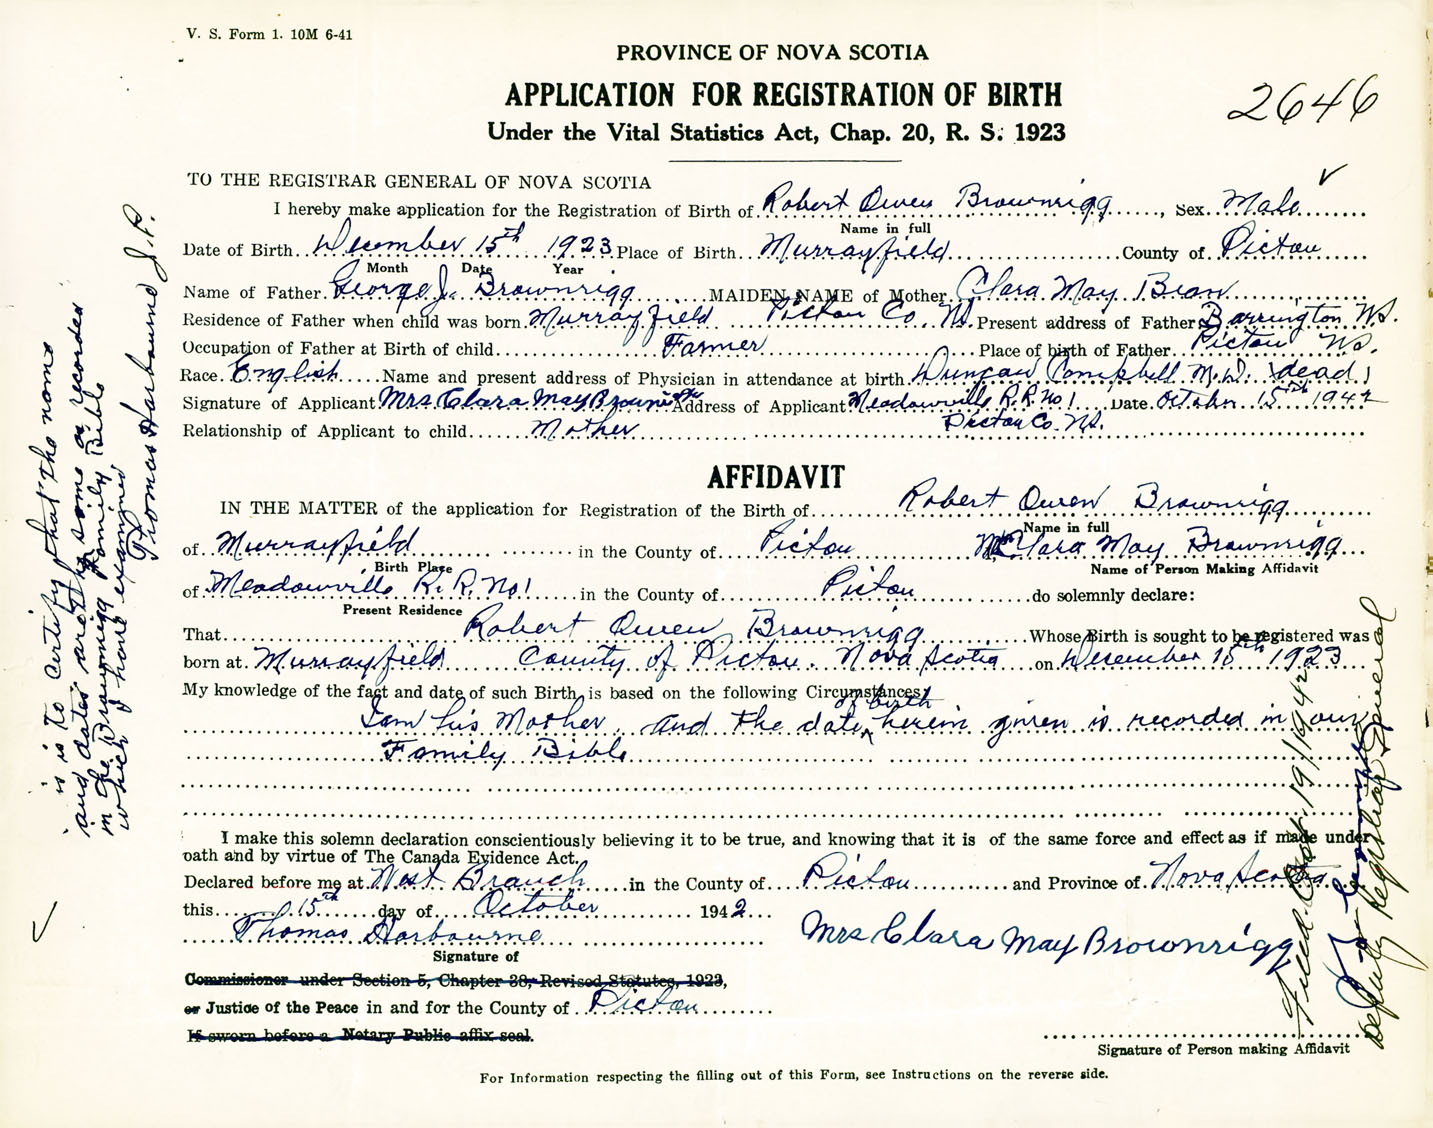 V. S. Form 1. 10M 6-41
PROVINCE OF NOVA SCOTIA
APPLICATION FOR REGISTRATION OF BIRTH
2646
Under the Vital Statistics Act, Chap. 20, R. S. 1923
TO THE REGISTRAR GENERAL OF NOVA SCOTIA
I hereby make application for the Registration of Birth of Robert Owen Brownrigg, Sex Male
Name in full
Date of Birth December 15th 1923 Place of Birth Murrayfield County of Pictou
Month Date Year
Name of Father George J. Brownrigg MAIDEN NAME of Mother Clara May Bean
Residence of Father when child was born Murrayfield Pictou Co. NS. Present address of Father Barrington NS.
Occupation of Father at Birth of child Farmer Place of birth of Father Pictou NS.
Race English Name and present address of Physician in attendance at birth Duncan Campbell M.D. (dead)
Signature of Applicant Mrs Clara May Brownrigg Address of Applicant Meadowville R.R. No 1 Date October 15th 1942
Relationship of Applicant to child Mother Pictou Co. NS.
AFFIDAVIT
IN THE MATTER of the application for Registration of the Birth of Robert Owen Brownrigg
Name in full
of Murrayfield in the County of Pictou Clara May Brownrigg
Birth Place Name of Person Making Affidavit
of Meadowville R.R. No 1 in the County of Pictou do solemnly declare:
Present Residence
That Robert Owen Brownrigg Whose Birth is sought to be registered was
born at Murrayfield County of Pictou. Nova Scotia on December 15th 1923
My knowledge of the fact and date of such Birth is based on the following Circumstances:
of birth
I am his Mother and the date herein given is recorded in our
Family Bible
I make this solemn declaration conscientiously believing it to be true, and knowing that it is of the same force and effect as if made under
oath and by virtue of The Canada Evidence Act.
Declared before me at West Branch in the County of Pictou and Province of Nova Scotia
this 15th day of October 1942
Thomas Harbourne Mrs Clara May Brownrigg
Signature of
Commissioner under Section 5, Chapter 38, Revised Statutes, 1923,
or Justice of the Peace in and for the County of Pictou
If sworn before a Notary Public affix seal.
Signature of Person making Affidavit
For Information respecting the filling out of this Form, see Instructions on the reverse side.
is is to certify that the name
and dates are the same as recorded
in the Brownrigg Family Bible
which I have examined
Thomas Harbourne J.P.
Filed Oct. 19/1942
Deputy Registrar General